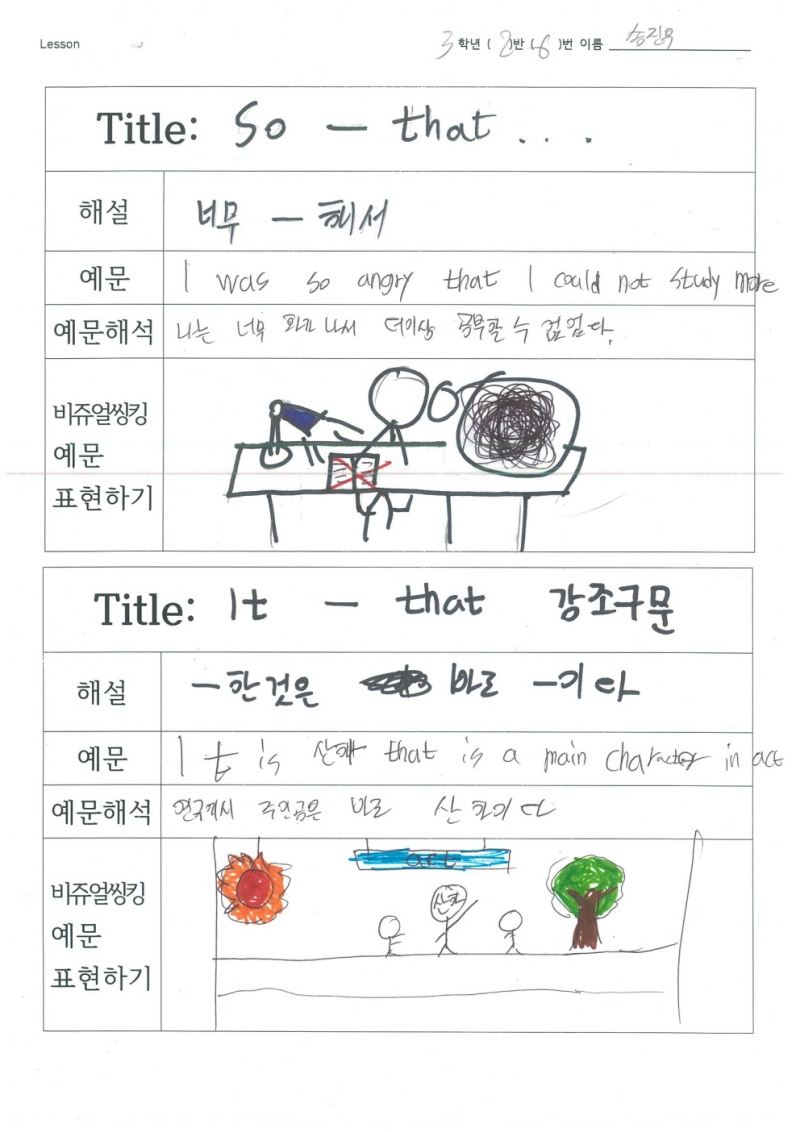 Lesson
3 학년 ( 8 )반 ( 16 )번 이름 송진우
Title: So – that . . .
해설 너무 – 해서
예문 I was so angry that I could not study more
예문해석 나는 너무 화가 나서 더이상 공부할 수 없었다.
비쥬얼씽킹
예문
표현하기
Title: It – that 강조구문
해설 – 한 것은 바로 – 이다
예문 It is 산하 that is a main character in act
예문해석 연극에서 주인공은 바로 산하이다
art
비쥬얼씽킹
산하
예문
표현하기